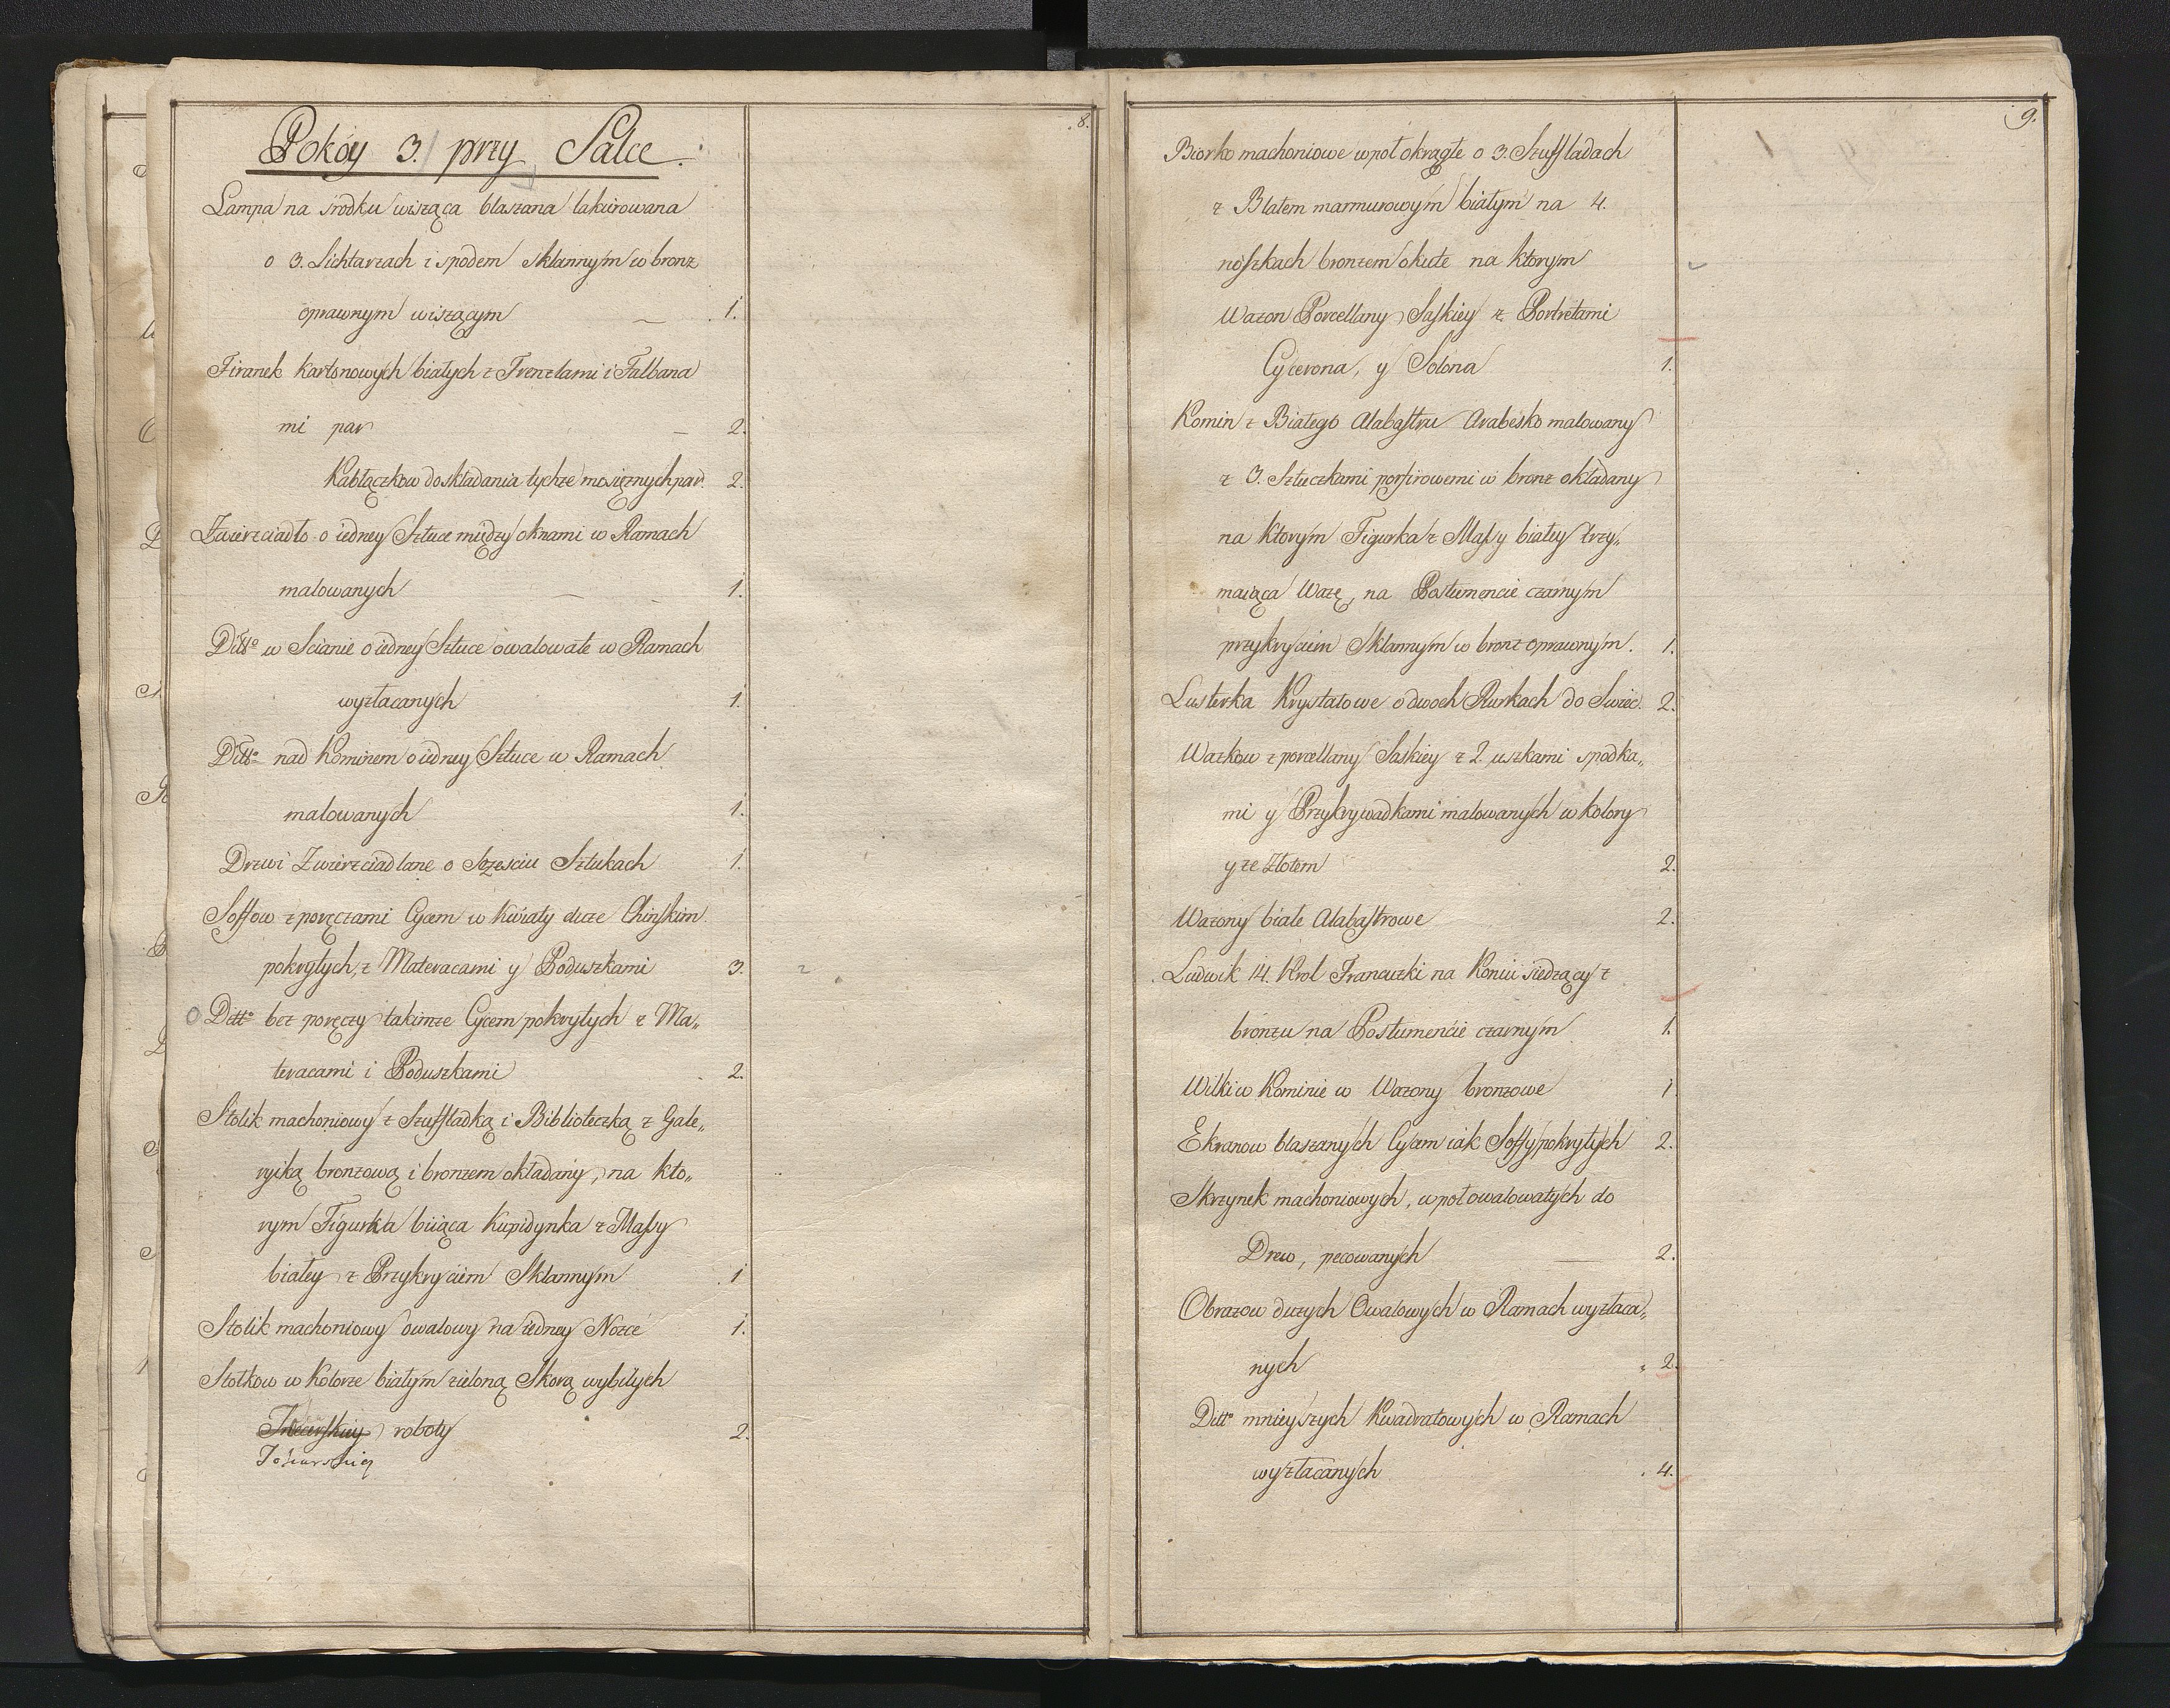 8.
Pokóy 3. przy Salce.
Lampa na srodku wisząca blaszana lakierowana
o 3. Lichtarzach i spodem sklannym w bronz
oprawnym wiszącym 1.
Firanek kartonowych białych z Frenzlami i Falbana
mi par 2.
Kabłączkow do składania tychze mosiężnych par. 2.
Zwierzciadło o iedney Sztuce między oknami w Ramach
malowanych 1.
Ditto w Scianie o iedney Sztuce owalowate w Ramach
wyzłacanych 1.
Ditto nad Kominem o iedney Sztuce w Ramach
malowanych 1.
Drzwi Zwierzciadlane o Szesciu Sztukach 1.
Soffow z poręczami Cycem w Kwiaty duze Chinskim
pokrytych, z Materacami y Poduszkami 3. 2
O Ditto bez poręczy takimze Cycem pokrytych z Ma„
teracami i Poduszkami 2.
Stolik machoniowy z Szuffladką i Biblioteczką z Gale„
ryiką bronzową i bronzem okładany, na kto„
rym Figurka biiąca Kupidynka z Massy
białey z Przykryciem Sklannym 1
Stolik machoniowy owalowy na iedney Nozce 1.
Stołkow w Kolorze białym zieloną Skorą wybitych
roboty 2.
Tokarskiey
9.
Biorko machoniowe wpoł okrągłe o 3. Szuffladach
z Blatem marmurowym białym na 4.
nószkach bronzem okute na ktorym
Wazon Porcellany Saskiey z Portretami
Cycerona, y Solona 1.
Komin z Białego Alabastru Arabesko malowany
z 3. Sztuczkami porfirowemi w bronz okładany
na ktorym Figurka z Massy białey trzy„
maiąca Wazę, na Postumencie czarnym
przykryciem Sklannym w bronz oprawnym. 1.
Lusterka Krystalowe o dwoch Rurkach do Swiec. 2.
Wazkow z porcellany Saskiey z 2. uszkami spodka„
mi y Przykrywadkami malowanych w kolory
y ze Złotem 2.
Wazony białe Alabastrowe 2.
Ludwik 14. Krol Francuzki na Koniu siedzący z
bronzu na Postumencie czarnym 1.
Wilki w Kominie w Wazony bronzowe 1
Ekranow blaszanych Cycem iak Soffy pokrytych 2.
Skrzynek machoniowych, wpoł owalowatych do
Drew, pecowanych 2.
Obrazow duzych Owalowych w Ramach wyzłaca„
nych 2.
Ditto mnieyszych Kwadratowych w Ramach
wyzłacanych 4.